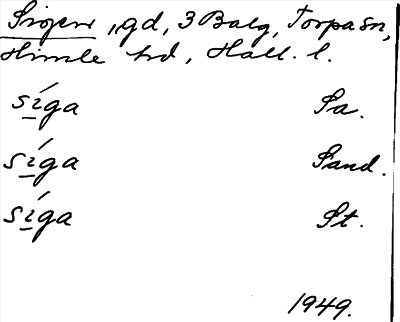 Sigen, gd, 3 Balg, Torpa sn,
Himle hd, Hall. l.
síga Sa.
síga Sand.
síga St.
1949.